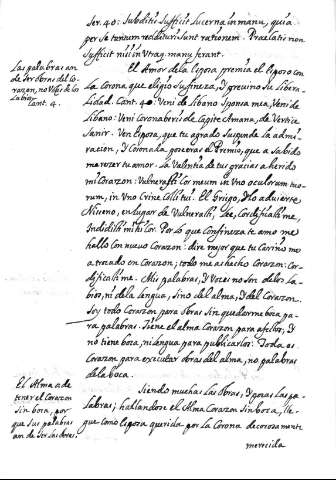 Ser. 40. Subditis Sufficit Lucerna in manu, quia
per se tantum reddituri sunt rationem. Praelatis non
Sufficit nisi in Utraq. manu ferant.
Las palabras an
de ser obras del Co-
razon, no Voces de los
Labios.
Cant. 4.
El Amor de la esposa premia el esposo con
La Corona que eligió su fineza, y previno su Libera-
lidad. Cant. 4. Veni de Libano Sponsa mea, Veni de
Libano: Veni coronaberis de Capite Amana, de Vertice
Sanir. Ven esposa, que tu agrado Suspende la admi-
racion, y Corona la goces en el Premio, que a sabido
merecer tu amor. La Valentia de tus gracias a herido
mi Corazon: Vulnerasti Cor meum in Uno oculorum tuo-
rum, in Uno Crine Colli tui. El Griego, Lo advierte
Niseno, en lugar de Vulnerasti, Lee, Cordificasti me,
Indidisti mihi Cor. Por lo que Con fineza te amo me
hallo con nuevo Corazon: dire mejor que tu Cariño me
a trocado en Corazon; todo me as hecho Corazon: Cor-
dificasti me. Mis palabras, y Voces no son de los La-
bios, ni de la Lengua, Sino del alma, y del Corazon.
Soy todo Corazon para obras Sin quedarme boca
para palabras. Tiene el alma Corazon para afectos, y
no tiene boca, ni Lengua para publicarlos: Toda es
Corazon para executar obras del alma, no palabras
de la boca.
El Alma a de
tener el Corazon
Sin boca, por
que Sus palabras
an de Ser Sus obras.
Siendo muchas Las obras, y pocas Las pa-
labras; hallandose el Alma Corazon Sin boca, lle-
gue como esposa querida por La Corona decorosamente
merecida